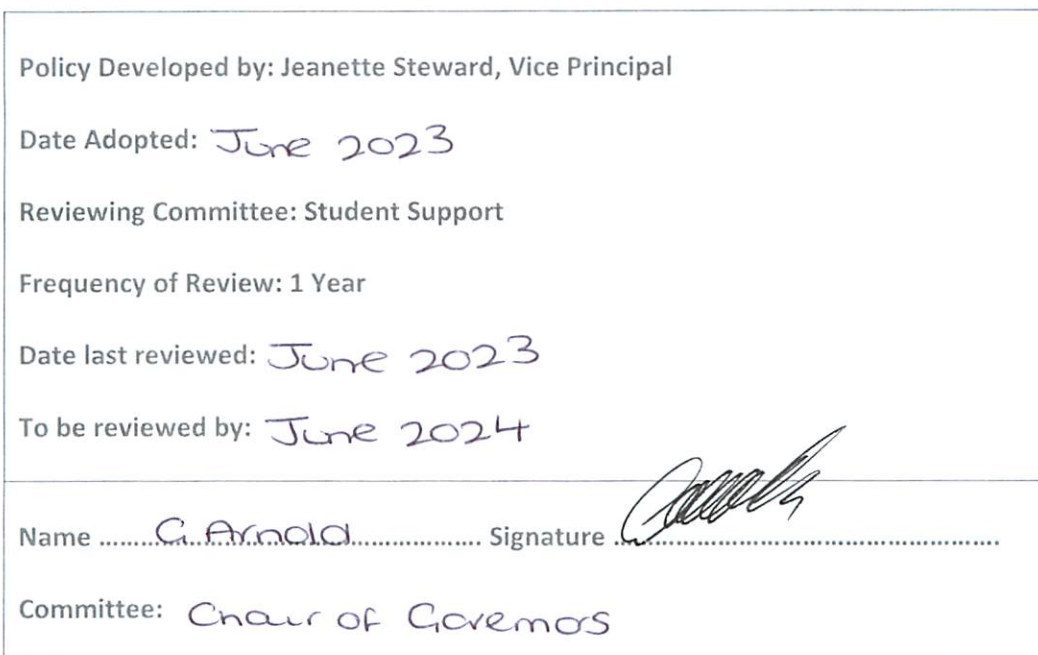 Policy Developed by: Jeanette Steward, Vice Principal
Date Adopted: June 2023
Reviewing Committee: Student Support
Frequency of Review: 1 Year
Date last reviewed: June 2023
To be reviewed by: June 2024
Name ........G Arnold.................. Signature ......................................................
Committee: Chair of Governors